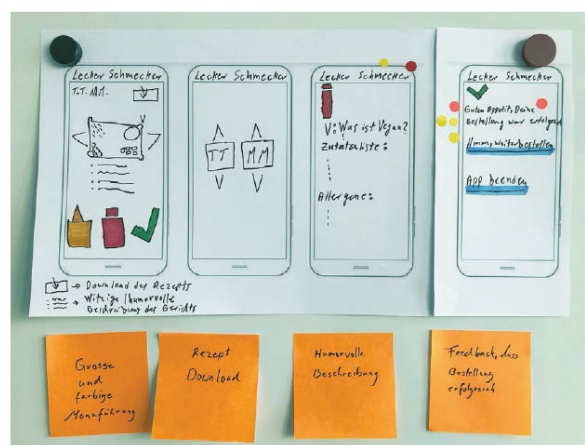 Lecker Schmecker
TT. MM.
Lecker Schmecker
TT MM
Lecker Schmecker
V: Was ist Vegan?
Zutatenliste:
Allergene:
Lecker Schmecker
Guten Appetit, Deine
Bestellung war erfolgreich
Hmm, weiterbestellen
App beenden
→ Download des Rezepts
→ Witzige/humorvolle
Beschreibung des Gerichts
Grosse
und
farbige
Menuführung
Rezept
Download
Humorvolle
Beschreibung
Feedback, dass
Bestellung
erfolgreich